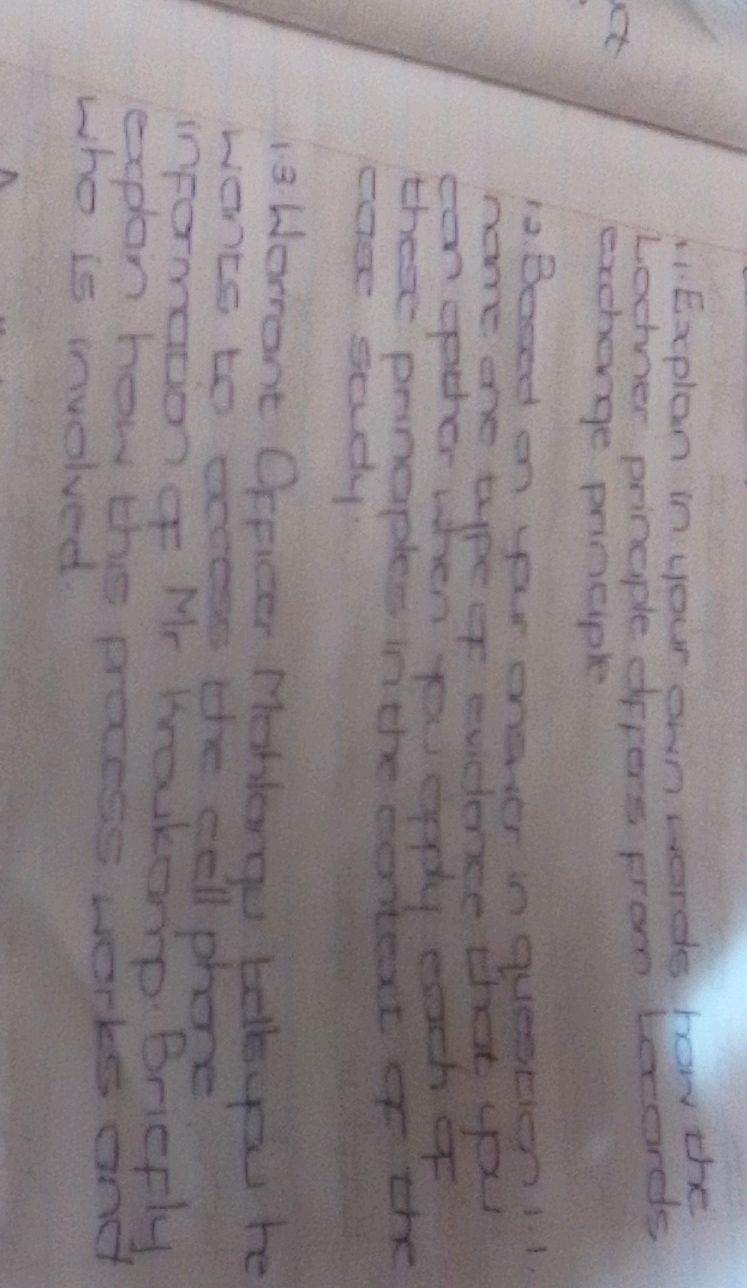 ct
1.1. Explain in your own words how the
Lochner principle differs from Locards
exchange principle
1.2. Based on your answer in question 1.1.
name one type of evidence that you
can gather when you apply each of
these principles in the context of the
case study.
1.3 Warrant Officer Mahlangu tells you he
wants to access the cell phone
information of Mr Kroukamp. Briefly
explan how this process works and
who is involved.